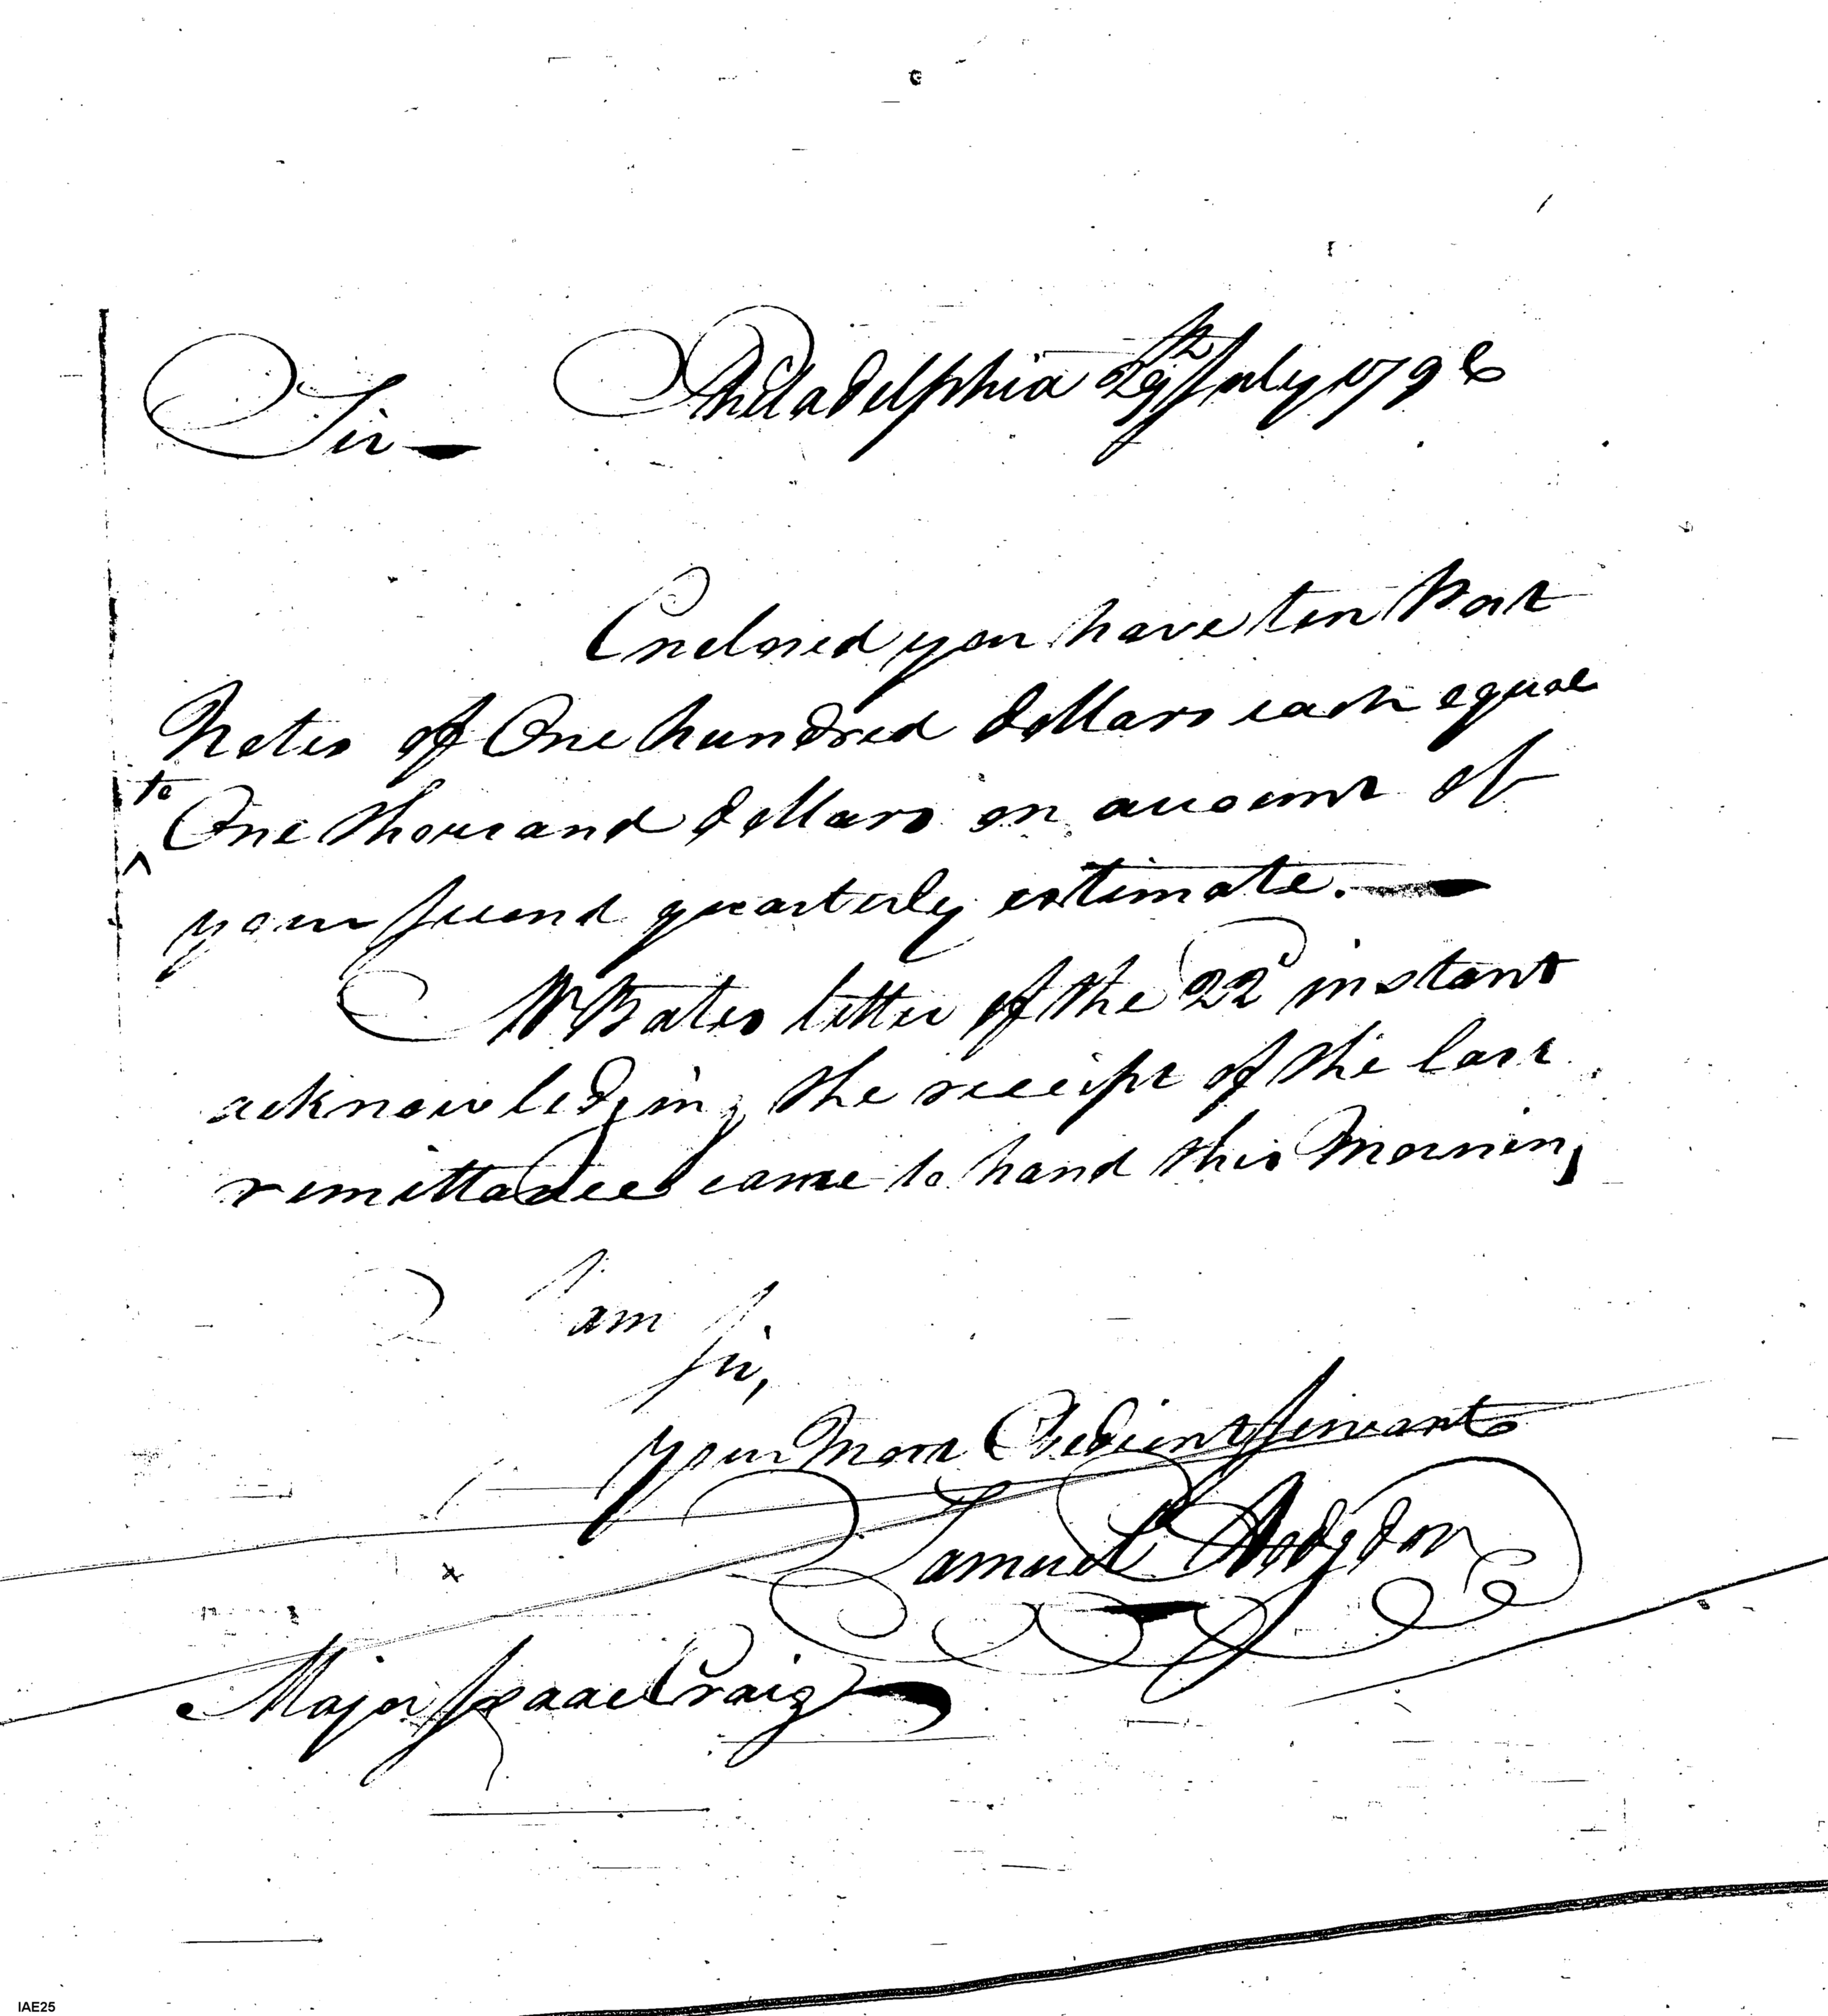 Philadelphia 29th July 1796
Sir
Enclosed you have ten Post
Notes of One hundred dollars each equal
to
One thousand dollars on account of
your quarterly estimate.
Mr Bates letter of the 22d instant
acknowledging the receipt of the last
remittance came to hand this Morning
I am
Sir,
Your Most Obedient Servant
Samuel Hodgdon
Major Isaac Craig
IAE25